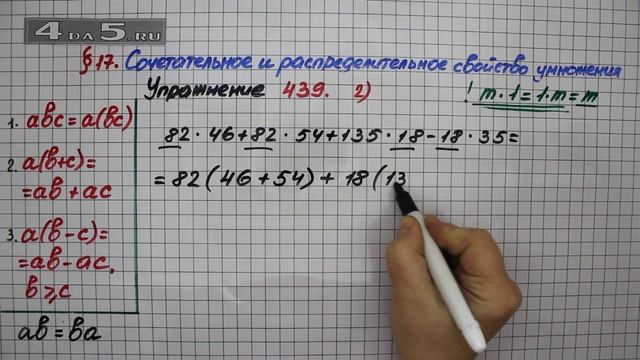 4DA5.RU
§17. Сочетательное и распределительное свойство умножения
Упражнение 439. 2)
! m·1=1·m=m
1. abc=a(bc)
2. a(b+c)=
=ab+ac
3. a(b-c)=
=ab-ac,
b⩾c
ab=ba
82·46+82·54+135·18-18·35=
=82(46+54)+18(13